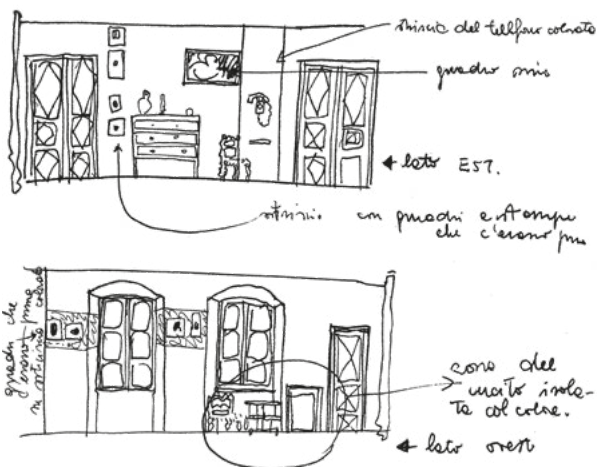 striscia del telefono colorata
quadro mio
lato EST.
striscia con quadri e stampe
che c'erano prima
quadri che
c'erano prima
su striscia colorata
zona del
isola-
ta col colore.
lato ovest